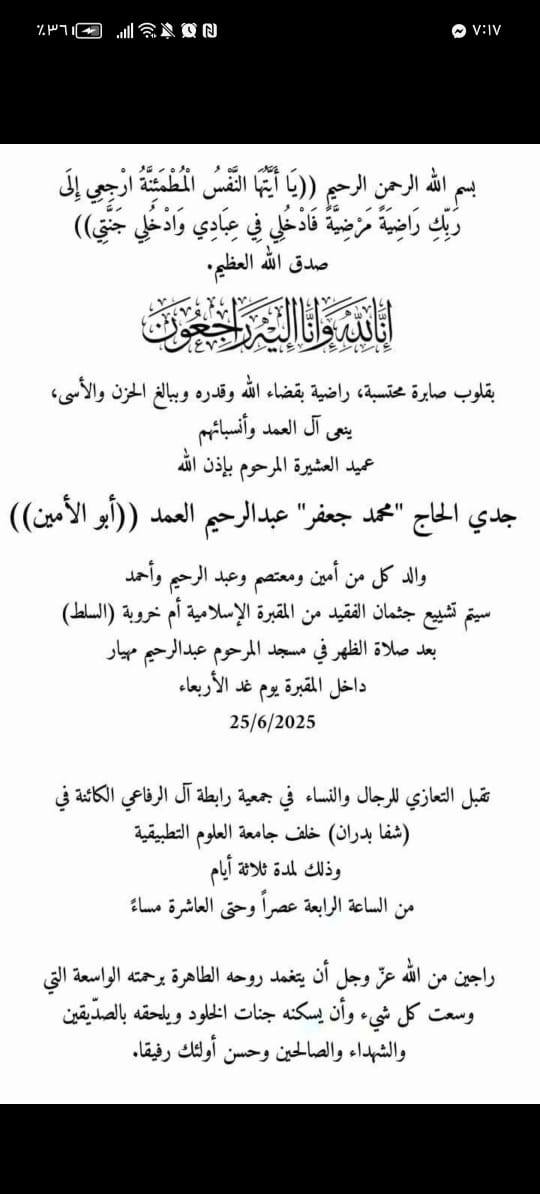 ٪٣٦
٧:١٧
بسم الله الرحمن الرحيم ((يَا أَيَّتُهَا النَّفْسُ الْمُطْمَئِنَّةُ ارْجِعِي إِلَى
رَبِّكِ رَاضِيَةً مَرْضِيَّةً فَادْخُلِي فِي عِبَادِي وَادْخُلِي جَنَّتِي))
صدق الله العظيم.
إِنَّا لِلَّهِ وَإِنَّا إِلَيْهِ رَاجِعُونَ
بقلوب صابرة محتسبة، راضية بقضاء الله وقدره وببالغ الحزن والأسى،
ينعى آل العمد وأنسبائهم
عميد العشيرة المرحوم بإذن الله
جدي الحاج "محمد جعفر" عبدالرحيم العمد ((أبو الأمين))
والد كل من أمين ومعتصم وعبد الرحيم وأحمد
سيتم تشييع جثمان الفقيد من المقبرة الإسلامية أم خروبة (السلط)
بعد صلاة الظهر في مسجد المرحوم عبدالرحيم مهيار
داخل المقبرة يوم غد الأربعاء
25/6/2025
تقبل التعازي للرجال والنساء في جمعية رابطة آل الرفاعي الكائنة في
(شفا بدران) خلف جامعة العلوم التطبيقية
وذلك لمدة ثلاثة أيام
من الساعة الرابعة عصراً وحتى العاشرة مساءً
راجين من الله عزّ وجل أن يتغمد روحه الطاهرة برحمته الواسعة التي
وسعت كل شيء وأن يسكنه جنات الخلود ويلحقه بالصدّيقين
والشهداء والصالحين وحسن أولئك رفيقا.